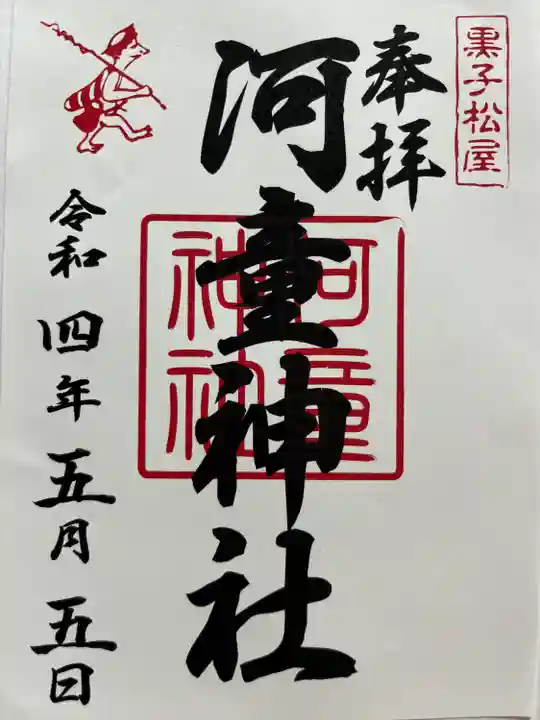 黒子松屋
奉拝
河童神社
河童神社
令和四年五月五日